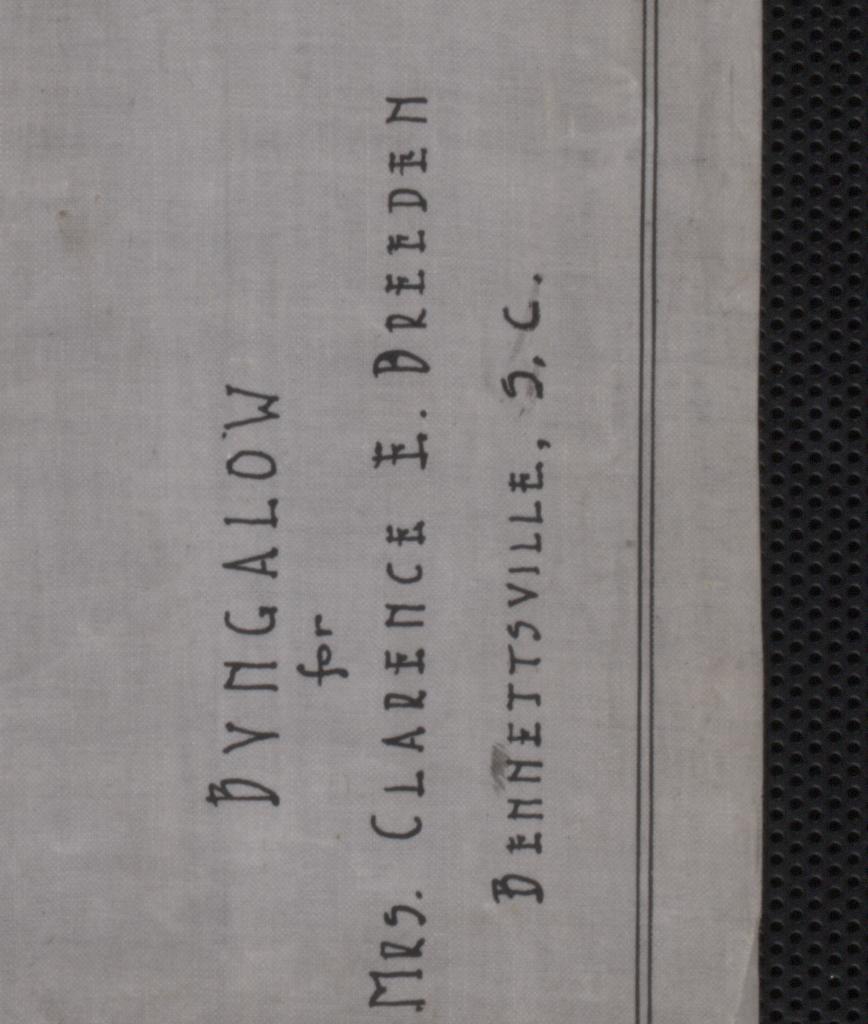 BVNGALOW
for
MRS. CLARENCE E. BREEDEN
BENNETTSVILLE, S.C.